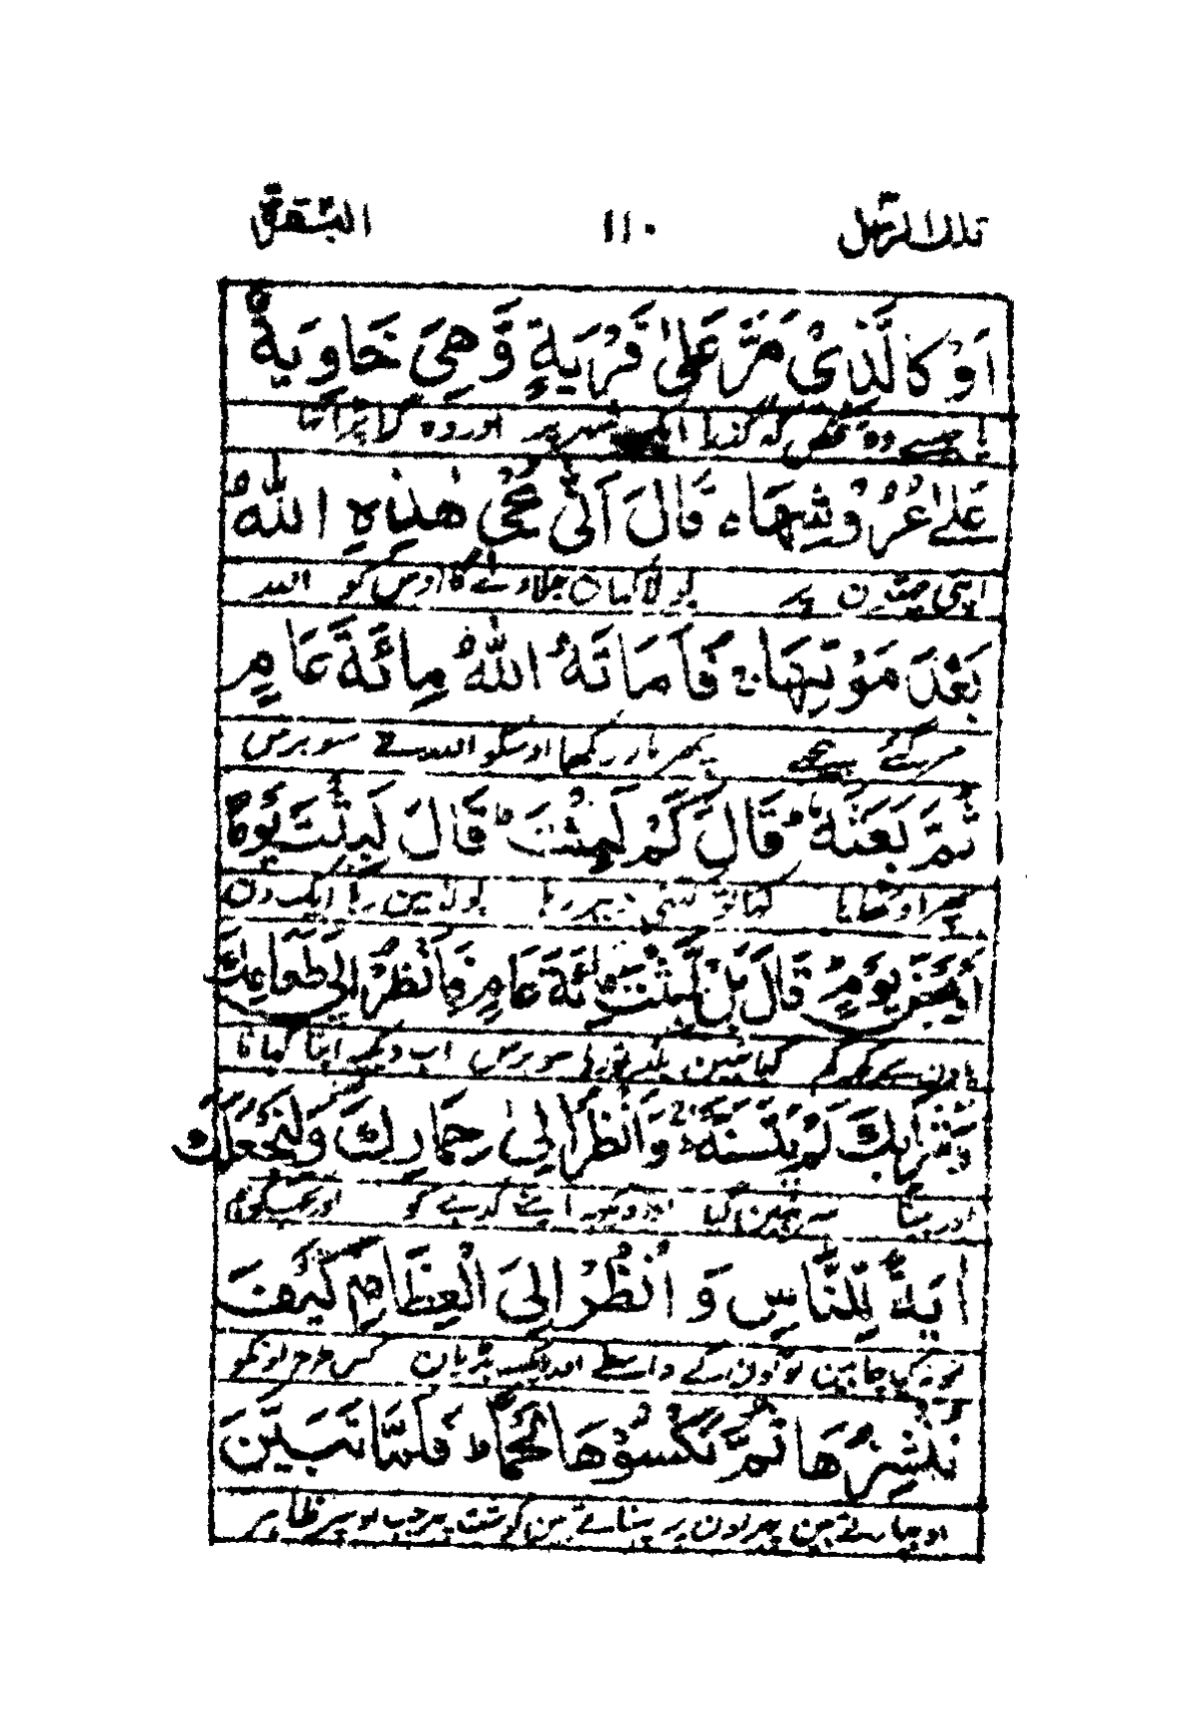 تلك الرسل ١١٠ البقرة
اَوْ كَالَّذِىْ مَرَّ عَلٰى قَرْيَةٍ وَّهِىَ خَاوِيَةٌ
یا جیسے وہ شخص کہ گذرا ایک شہر پر اور وہ گرا پڑا تھا
عَلٰى عُرُوْشِهَاء قَالَ اَنّٰى يُحْىٖ هٰذِهِ اللّٰهُ
اپنی چھتون پر بولا کہان جلاوے گا اوس کو اللہ
بَعْدَ مَوْتِهَاج فَاَمَاتَهُ اللّٰهُ مِائَةَ عَامٍ
مر گئے پیچھے پھر مار رکھا اوسکو اللہ نے سو برس
ثُمَّ بَعَثَهٗط قَالَ كَمْ لَبِثْتَط قَالَ لَبِثْتُ يَوْمًا
پھر اوٹھایا کہا تو کتنی دیر رہا بولا مین رہا ایک دن
اَوْ بَعْضَ يَوْمٍط قَالَ بَلْ لَّبِثْتَ مِائَةَ عَامٍ فَانْظُرْ اِلٰى طَعَامِكَ
یا دن سے کچھ کم کہا نہین بلکہ تو رہا سو برس اب دیکھ اپنا کھانا
وَشَرَابِكَ لَمْ يَتَسَنَّهْج وَانْظُرْ اِلٰى حِمَارِكَ وَلِنَجْعَلَكَ
اور پینا سڑ نہین گیا اور دیکھ اپنے گدہے کو اور تجھکو
اٰيَةً لِّلنَّاسِ وَ انْظُرْ اِلَى الْعِظَامِ كَيْفَ
نمونہ کیا چاہین لوگون کے واسطے اور دیکھ ہڈیان کس طرح اونکو
نُنْشِزُهَا ثُمَّ نَكْسُوْهَا لَحْمًاط فَلَمَّا تَبَيَّنَ
اوبھارتے ہین پھر اون پر پہناتے ہین گوشت پھر جب اوسپر ظاہر